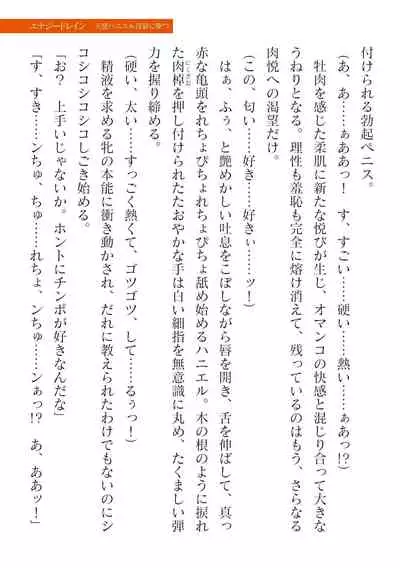 エナジードレイン　天使ハニエル淫辱に堕つ
付けられる勃起ペニス。
（あ、あ……ぁああっ！　す、すごい……硬い……熱い……ぁあっ？）
　牡肉を感じた柔肌に新たな悦びが生じ、オマンコの快感と混じり合って大きな
うねりとなる。理性も羞恥も完全に熔け消えて、残っているのはもう、さらなる
肉悦への渇望だけ。
（この、匂い……好き……好きぃ……ッ！）
　はぁ、ふぅ、と艶めかしい吐息をこぼしながら唇を開き、舌を伸ばして、真っ
赤な亀頭をれちょぴちょれちょぴちょ舐め始めるハニエル。木の根のように捩れ
た肉棹を押し付けられたたおやかな手は白い細指を無意識に丸め、たくましい弾
力を握り締める。
（硬い、太い……すっごく熱くて、ゴツゴツ、して……るぅっ！）
　精液を求める牝の本能に衝き動かされ、だれに教えられたわけでもないのにシ
コシコシコシコしごき始める。
「お？　上手いじゃないか。ホントにチンポが好きなんだな」
「す、すき……ンちゅ、ちゅ……れちょ、ンちゅ……ンぁっ!?　あ、ああッ！」